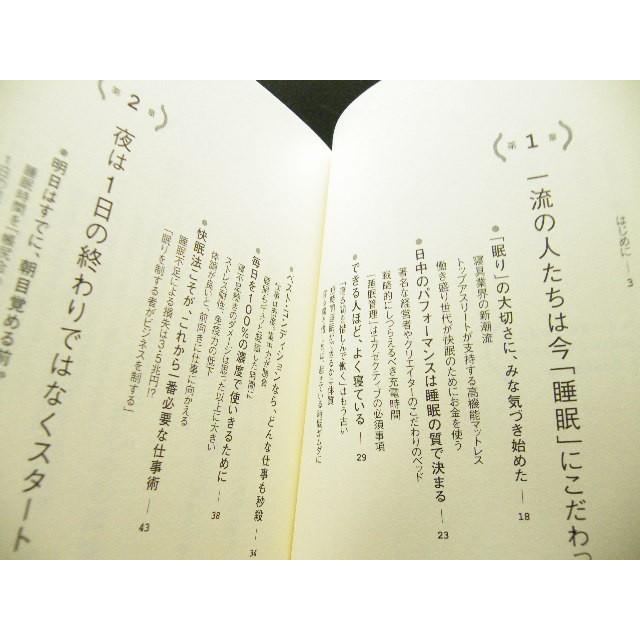 はじめに — 3
第1章
一流の人たちは今「睡眠」にこだわっ
●「眠り」の大切さに、みな気づき始めた — 18
寝具業界の新潮流
トップアスリートが支持する高機能マットレス
働き盛り世代が快眠のためにお金を使う
●日中のパフォーマンスは睡眠の質で決まる — 23
著名な経営者やクリエイターのこだわりのベッド
戦略的にしつらえるべき充電時間
「睡眠管理」はエグゼクティブの必須事項
●できる人ほど、よく寝ている — 29
「寝る間を惜しんで働く」はもう古い
ベスト・コンディションなら、どんな仕事も秒殺 — 34
●毎日を100%の濃度で使いきるために — 38
寝不足続きのダメージは思った以上に大きい
ストレス過剰、免疫力の低下
体調が良いと、前向きに仕事に向かえる
●快眠法こそが、これから一番必要な仕事術 — 43
睡眠不足による損失は3.5兆円!?
「眠りを制する者がビジネスを制する」
第2章
夜は1日の終わりではなくスタート
●明日はすでに、朝目覚める前